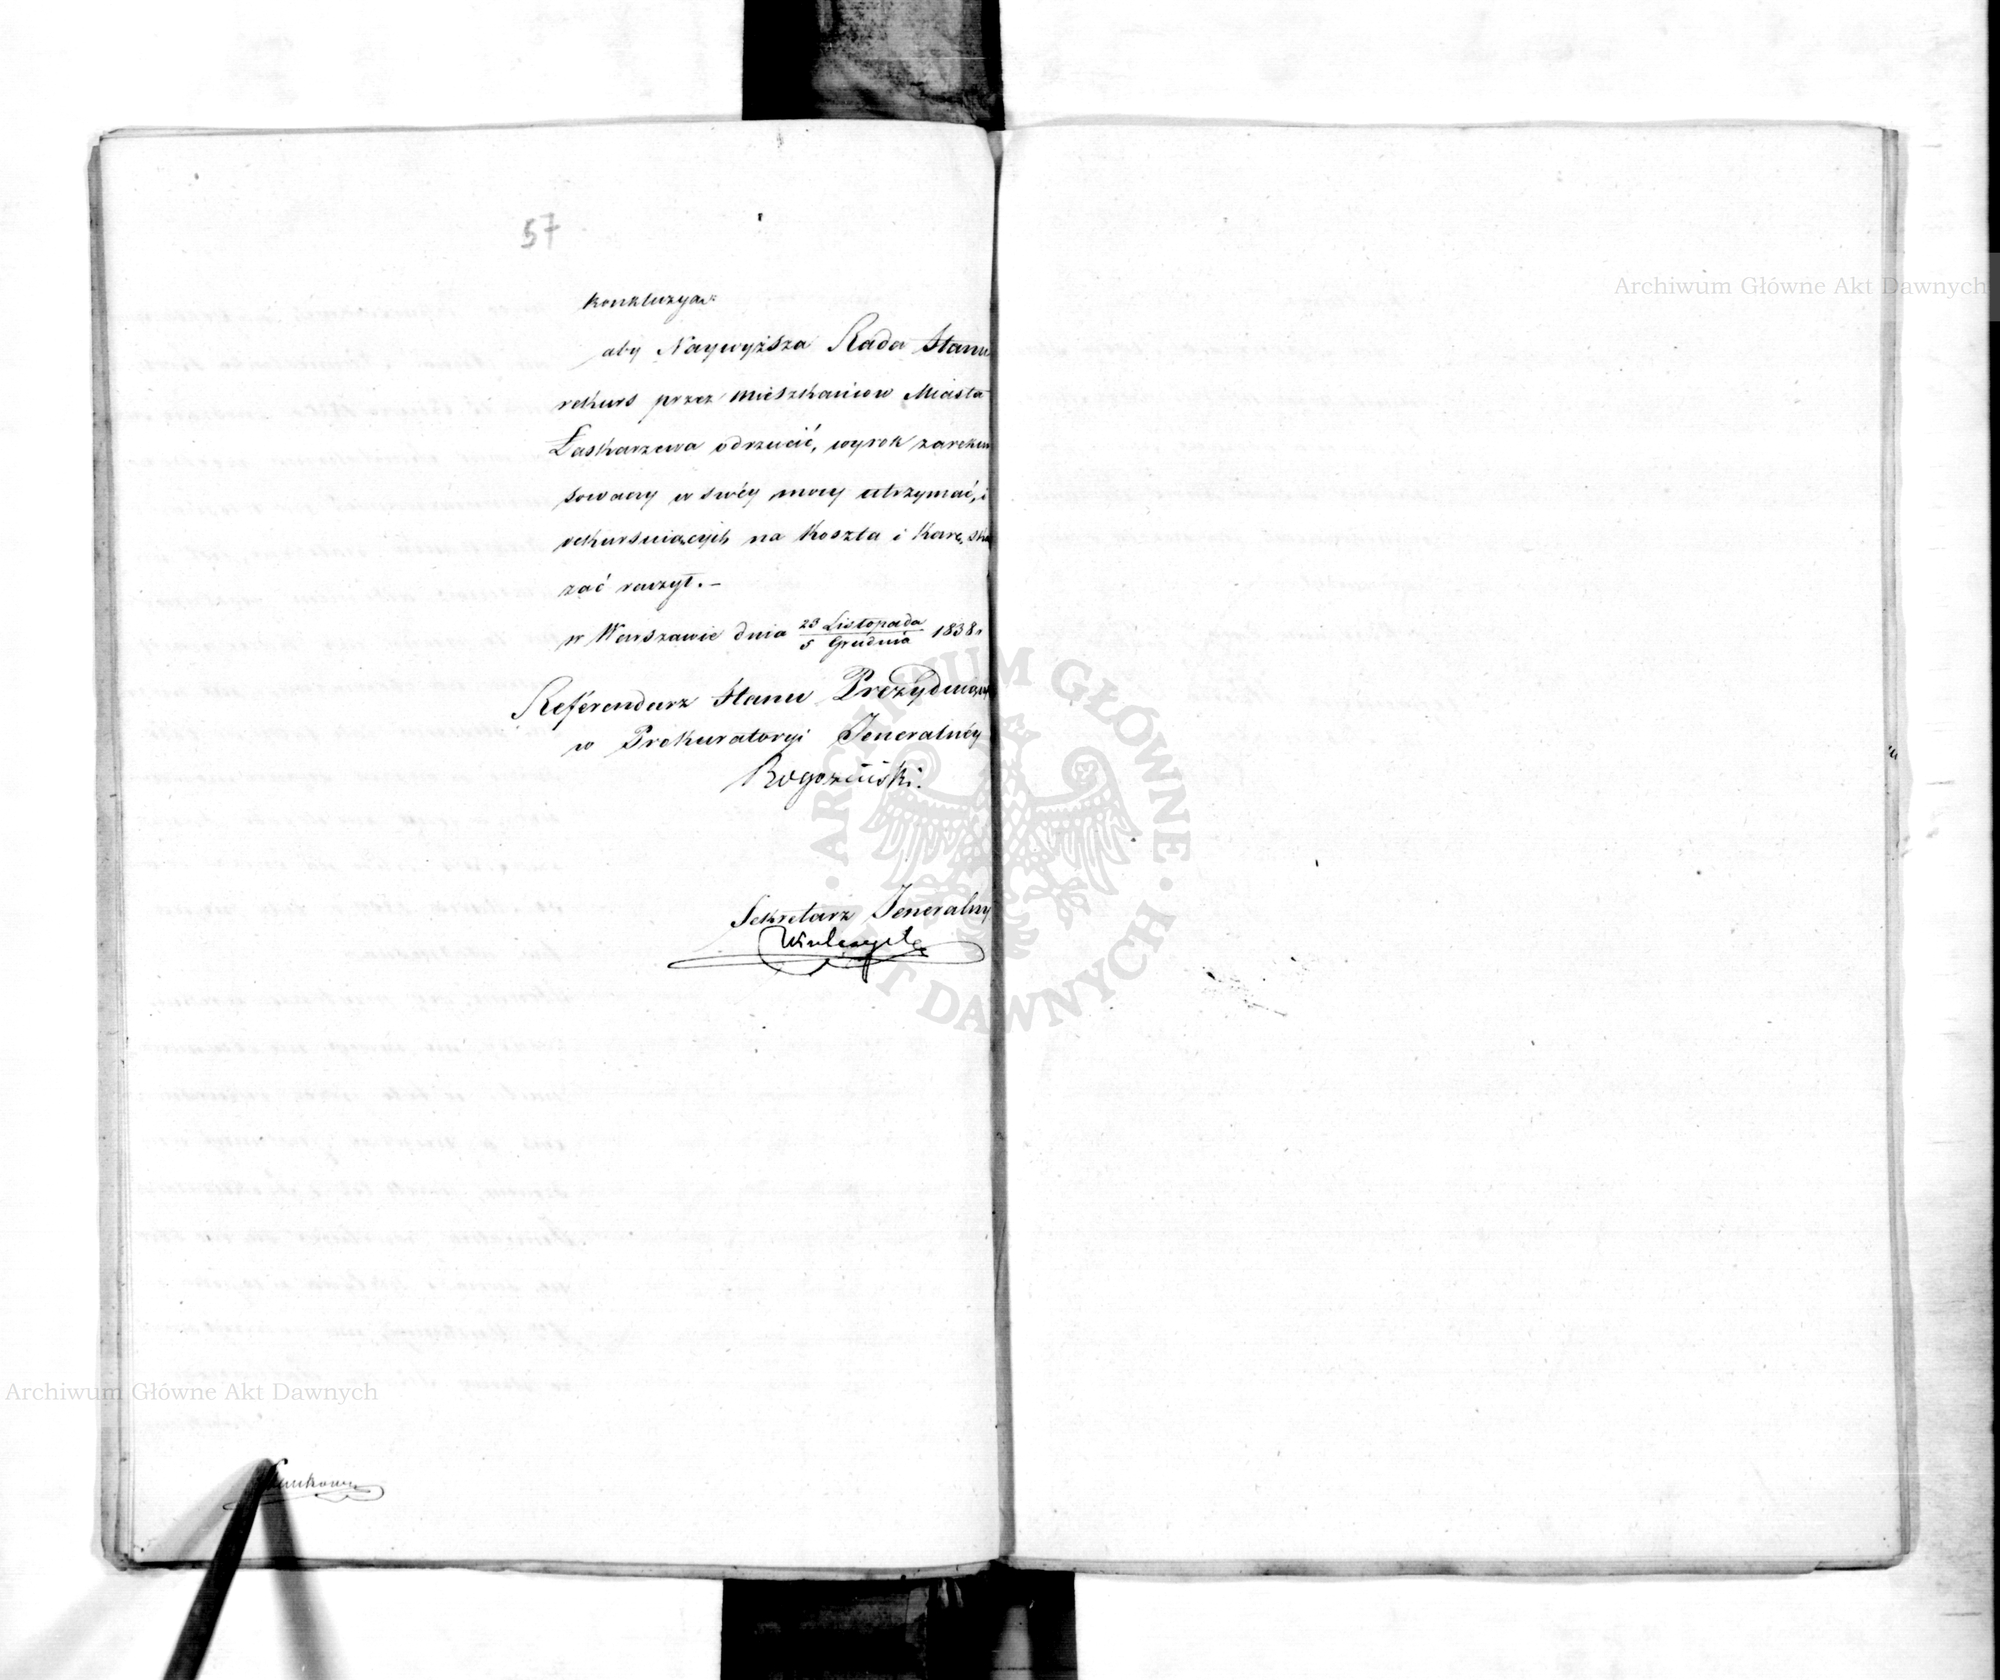 57
Konkluzya
aby Naywyższa Rada Stanu
rekurs przez mieszkańców Miasta
Łaskarzewa odrzucić, wyrok zarekur
sowany w swéy mocy utrzymać, i
rekursuiących na Koszta i Karę, ska
zać raczył.—
w Warszawie dnia 23 Listopada / 5 Grudnia 1838 r
Referendarz Stanu Prezyduiący
w Prokuratoryi Jeneralnéy
Rogoziński.
Sekretarz Jeneralny
Archiwum Główne Akt Dawnych
Archiwum Główne Akt Dawnych
ARCHIWUM GŁÓWNE AKT DAWNYCH